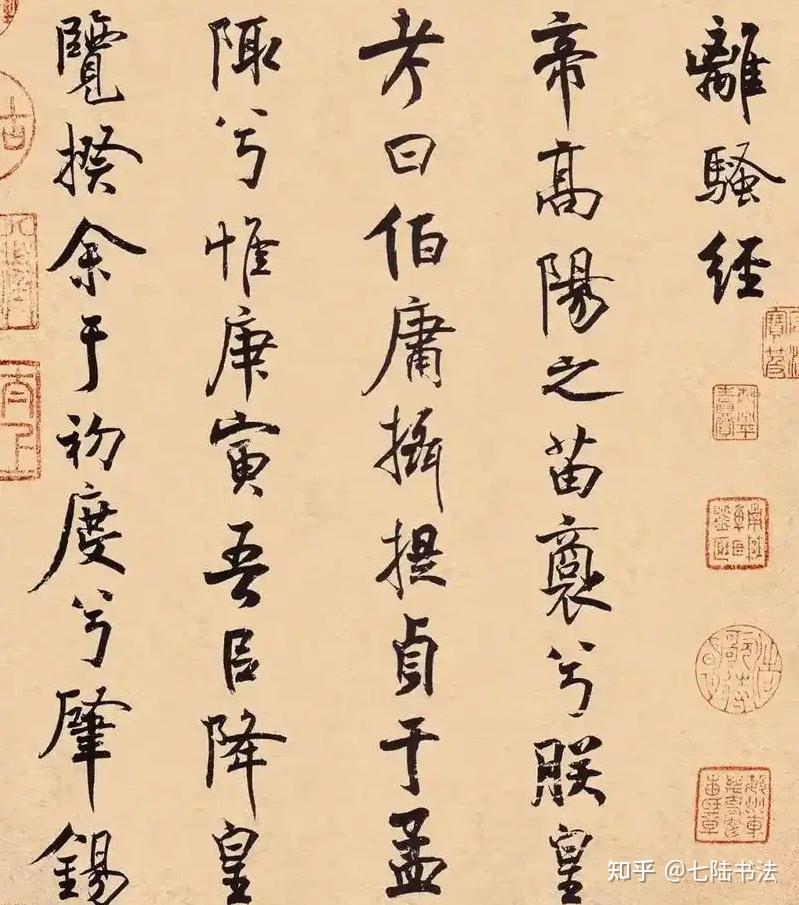 離騷經
帝高陽之苗裔兮朕皇
考曰伯庸攝提貞于孟
陬兮惟庚寅吾㠯降皇
覽揆余于初度兮肇錫
知乎 @七陆书法